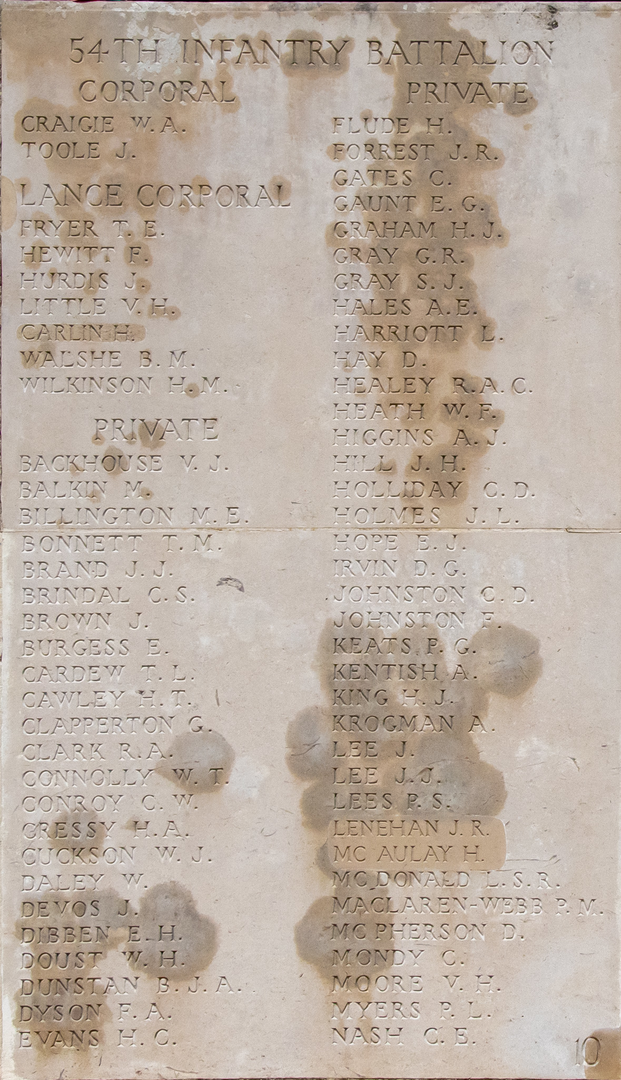 54TH INFANTRY BATTALION
CORPORAL
CRAIGIE W.A.
TOOLE J.
LANCE CORPORAL
FRYER T. E.
HEWITT F.
HURDIS J.
LITTLE V. H.
CARLIN H.
WALSHE B. M.
WILKINSON H. M.
PRIVATE
BACKHOUSE V. J.
BALKIN M.
BILLINGTON M. E.
BONNETT T. M.
BRAND J. J.
BRINDAL C. S.
BROWN J.
BURGESS E.
CARDEW T. L.
CAWLEY H. T.
CLAPPERTON G.
CLARK R. A.
CONNOLLY W. T.
CONROY C. W.
CRESSY H. A.
CUCKSON W. J.
DALEY W.
DEVOS J.
DIBBEN E. H.
DOUST W. H.
DUNSTAN B. J. A.
DYSON F. A.
EVANS H. C.
PRIVATE
FLUDE H.
FORREST J. R.
GATES C.
GAUNT E. G.
GRAHAM H. J.
GRAY G. R.
GRAY S. J.
HALES A. E.
HARRIOTT L.
HAY D.
HEALEY R. A. C.
HEATH W. F.
HIGGINS A. J.
HILL J. H.
HOLLIDAY C. D.
HOLMES J. L.
HOPE E. J.
IRVIN D. G.
JOHNSTON C. D.
JOHNSTON F.
KEATS P. G.
KENTISH A.
KING H. J.
KROGMAN A.
LEE J.
LEE J. J.
LEES P. S.
LENEHAN J. R.
MC AULAY H.
MC DONALD L. S. R.
MACLAREN-WEBB P. M.
MC PHERSON D.
MONDY C.
MOORE V. H.
MYERS P. L.
NASH C. E.
10